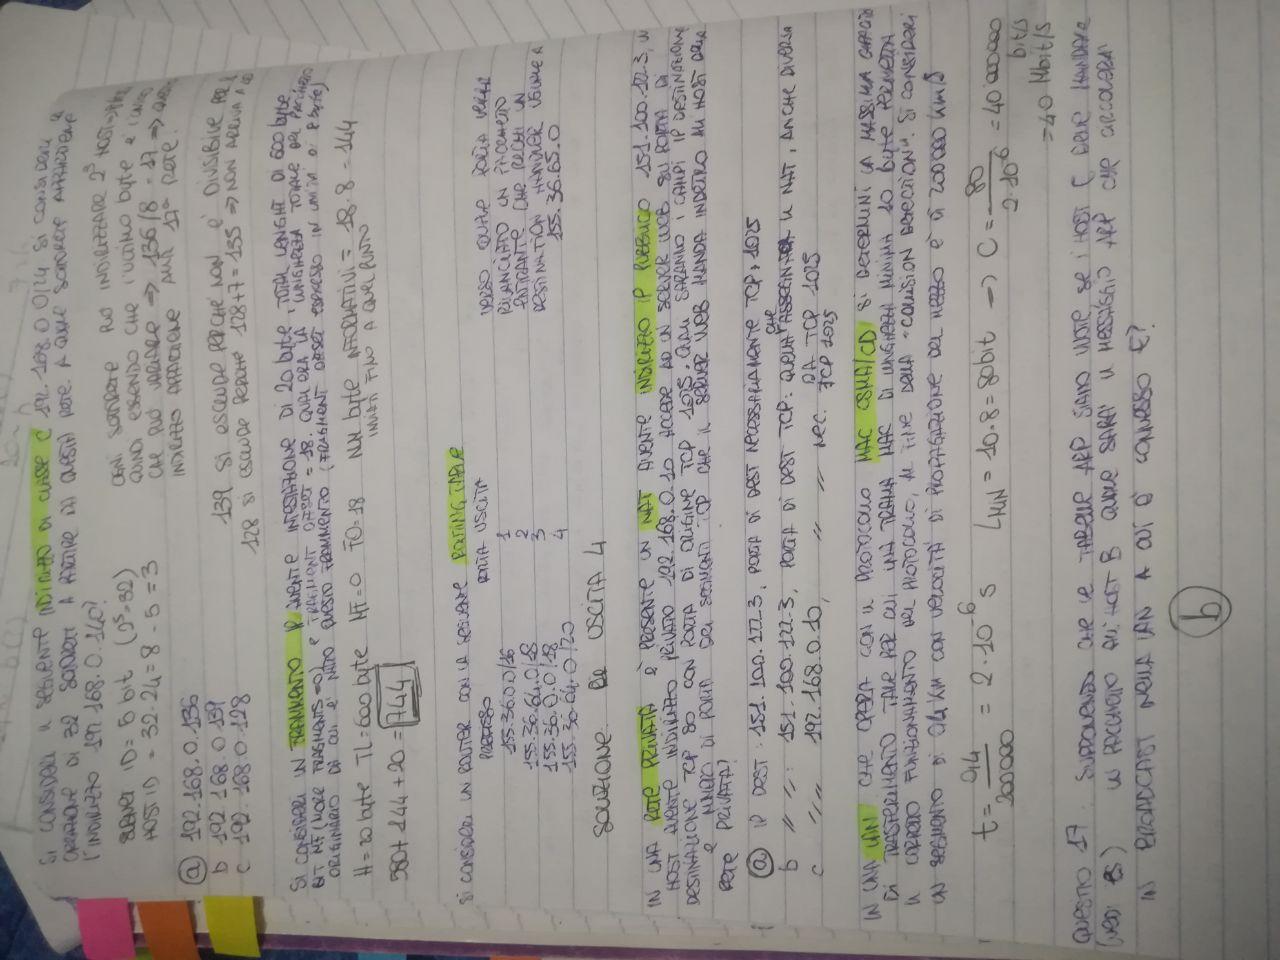 SI CONSIDERI IL SEGUENTE INDIRIZZO DI CLASSE C 192.168.0.0/24 SI CONSIDERI LA
CREAZIONE DI 32 SOTTORETI A PARTIRE DA QUESTA RETE. A QUALE SOTTORETE APPARTIENE
L'INDIRIZZO 192.168.0.140?
SUBNET ID = 5 bit (2⁵=32)
HOST ID = 32-24=8-5=3
OGNI SOTTORETE PUÒ INDIRIZZARE 2³ HOST
QUINDI ESSENDO CHE L'ULTIMO BYTE È L'UNICO
CHE PUÒ VARIARE => 136/8 = 17 => QUESTO
INDIRIZZO APPARTIENE ALLA 17ª RETE.
a 192.168.0.136
b 192.168.0.139
c 192.168.0.128
139 SI ESCLUDE PERCHÉ NON È DIVISIBILE PER 8
128 SI ESCLUDE PERCHÉ 128+7=135 => NON ARRIVA A 140
SI CONSIDERI UN FRAMMENTO IP AVENTE INTESTAZIONE DI 20 byte, TOTAL LENGHT DI 600 byte,
BIT MF (MORE FRAGMENTS =0) E FRAGMENT OFFSET = 18. QUAL ERA LA LUNGHEZZA TOTALE DEL PACCHETTO
ORIGINARIO DA CUI È NATO QUESTO FRAMMENTO (FRAGMENT OFFSET ESPRESSO IN UNITÀ DI 8 byte)
H=20 byte TL=600 byte MF=0 FO=18 NUM byte INFORMATIVI = 18.8 = 144
INVIATI FINO A QUEL PUNTO
580+144+20=744
SI CONSIDERI UN ROUTER CON LA SEGUENTE ROUTING TABLE
PREFISSO PORTA USCITA
155.36.0.0/16 1
155.36.64.0/18 2
155.36.0.0/18 3
155.36.64.0/20 4
VERSO QUALE PORTA VERRÀ
RILANCIATO UN PACCHETTO
ENTRANTE CHE RECHI UN
DESTINATION HANDLER UGUALE A
155.36.65.0
SOLUZIONE USCITA 4
IN UNA RETE PRIVATA È PRESENTE UN NAT AVENTE INDIRIZZO IP PUBBLICO 151.100.122.3, UN
HOST AVENTE INDIRIZZO PRIVATO 192.168.0.10 ACCEDE AD UN SERVER WEB SU PORTA DI
DESTINAZIONE TCP 80 CON PORTA DI ORIGINE TCP 1025. QUALI SARANNO I CAMPI IP DESTINAZIONE
E NUMERO DI PORTA DEI SEGMENTI TCP CHE IL SERVER WEB MANDA INDIETRO ALL'HOST DELLA
RETE PRIVATA?
a IP DEST: 151.100.122.3, PORTA DI DEST NECESSARIAMENTE TCP: 1025
b // //: 151.100.122.3, PORTA DI DEST TCP: QUELLA CHE ASSEGNA IL NAT, ANCHE DIVERSA
DA TCP 1025
c // // 192.168.0.10, // // NEC. TCP 1025
IN UNA LAN CHE OPERA CON IL PROTOCOLLO MAC CSMA/CD SI DETERMINI LA MASSIMA CAPACITÀ
DI TRASFERIMENTO TALE PER CUI UNA TRAMA MAC DI LUNGHEZZA MINIMA 10 byte PERMETTA
IL CORRETTO FUNZIONAMENTO DEL PROTOCOLLO, AL FINE DELLA "COLLISION DETECTION". SI CONSIDERI
UN SEGMENTO DI 0,4 KM CON VELOCITÀ DI PROPAGAZIONE DEL MEZZO È DI 200000 km/s
t = 0,4/200000 = 2·10⁻⁶ s L MIN = 10·8=80bit -> C = 80/2·10⁻⁶ = 40000000
bit/s
=40 Mbit/s
QUESITO 17 SUPPONENDO CHE LE TABELLE ARP SIANO VUOTE SE L'HOST E DEVE MANDARE
(VEDI ES) UN PACCHETTO ALL'HOST B QUALE SARÀ IL MESSAGGIO ARP CHE CIRCOLERÀ
IN BROADCAST NELLA LAN A CUI È CONNESSO E?
b